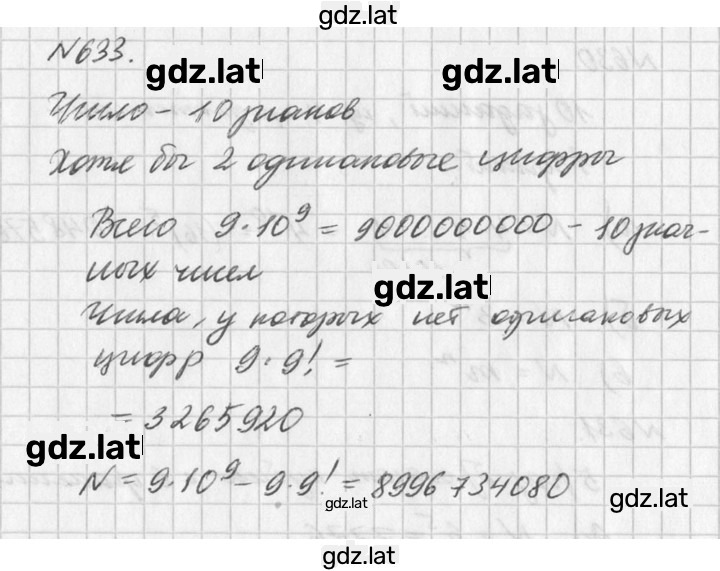 gdz.lat
№633.
gdz.lat gdz.lat
Число - 10 знаков
Хотя бы 2 одинаковые цифры
Всего 9·10⁹ = 9000000000 - 10 знач-
ных чисел
gdz.lat
Числа, у которых нет одинаковых
цифр 9·9! =
= 3265920
gdz.lat
N = 9·10⁹ - 9·9! = 8996734080
gdz.lat
gdz.lat
gdz.lat